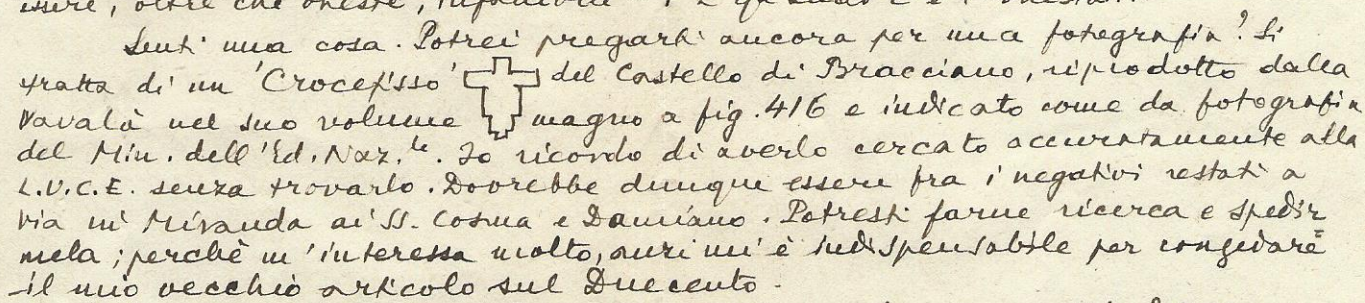 essere, oltre che oneste,
Senti una cosa. Potrei pregarti ancora per una fotografia? Si
tratta di un 'Crocefisso' del Castello di Bracciano, riprodotto dalla
Vavalà nel suo volume magno a fig. 416 e indicato come da fotografia
del Min. dell'Ed. Naz.le. Io ricordo di averlo cercato accuratamente alla
L.U.C.E. senza trovarlo. Dovrebbe dunque essere fra i negativi restati a
via in Miranda ai SS. Cosma e Damiano. Potresti farne ricerca e spedir
mela; perchè m'interessa molto, anzi mi è indispensabile per congedare
il mio vecchio articolo sul Duecento.